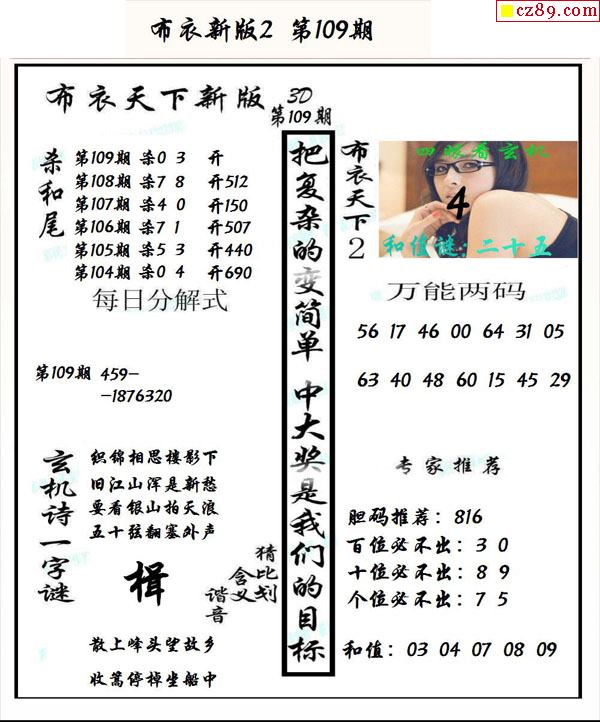 cz89.com
布衣新版2 第109期
布衣天下新版 3D
第109期
杀和尾
第109期 杀0 3 开
第108期 杀7 8 开512
第107期 杀4 0 开150
第106期 杀7 1 开507
第105期 杀5 3 开440
第104期 杀0 4 开690
每日分解式
第109期 459-
-1876320
玄机诗一字谜
织锦相思楼影下
旧江山浑是新愁
要看银山拍天浪
五十弦翻塞外声
楫
猜比划
含义
谐音
散上峰头望故乡
收蒿停棹坐船中
把复杂的变简单 中大奖是我们的目标
布衣天下2
四眼看玄机
4
和值谜:二十五
万能两码
56 17 46 00 64 31 05
63 40 48 60 15 45 29
专家推荐
胆码推荐: 816
百位必不出: 3 0
十位必不出: 8 9
个位必不出: 7 5
和值: 03 04 07 08 09